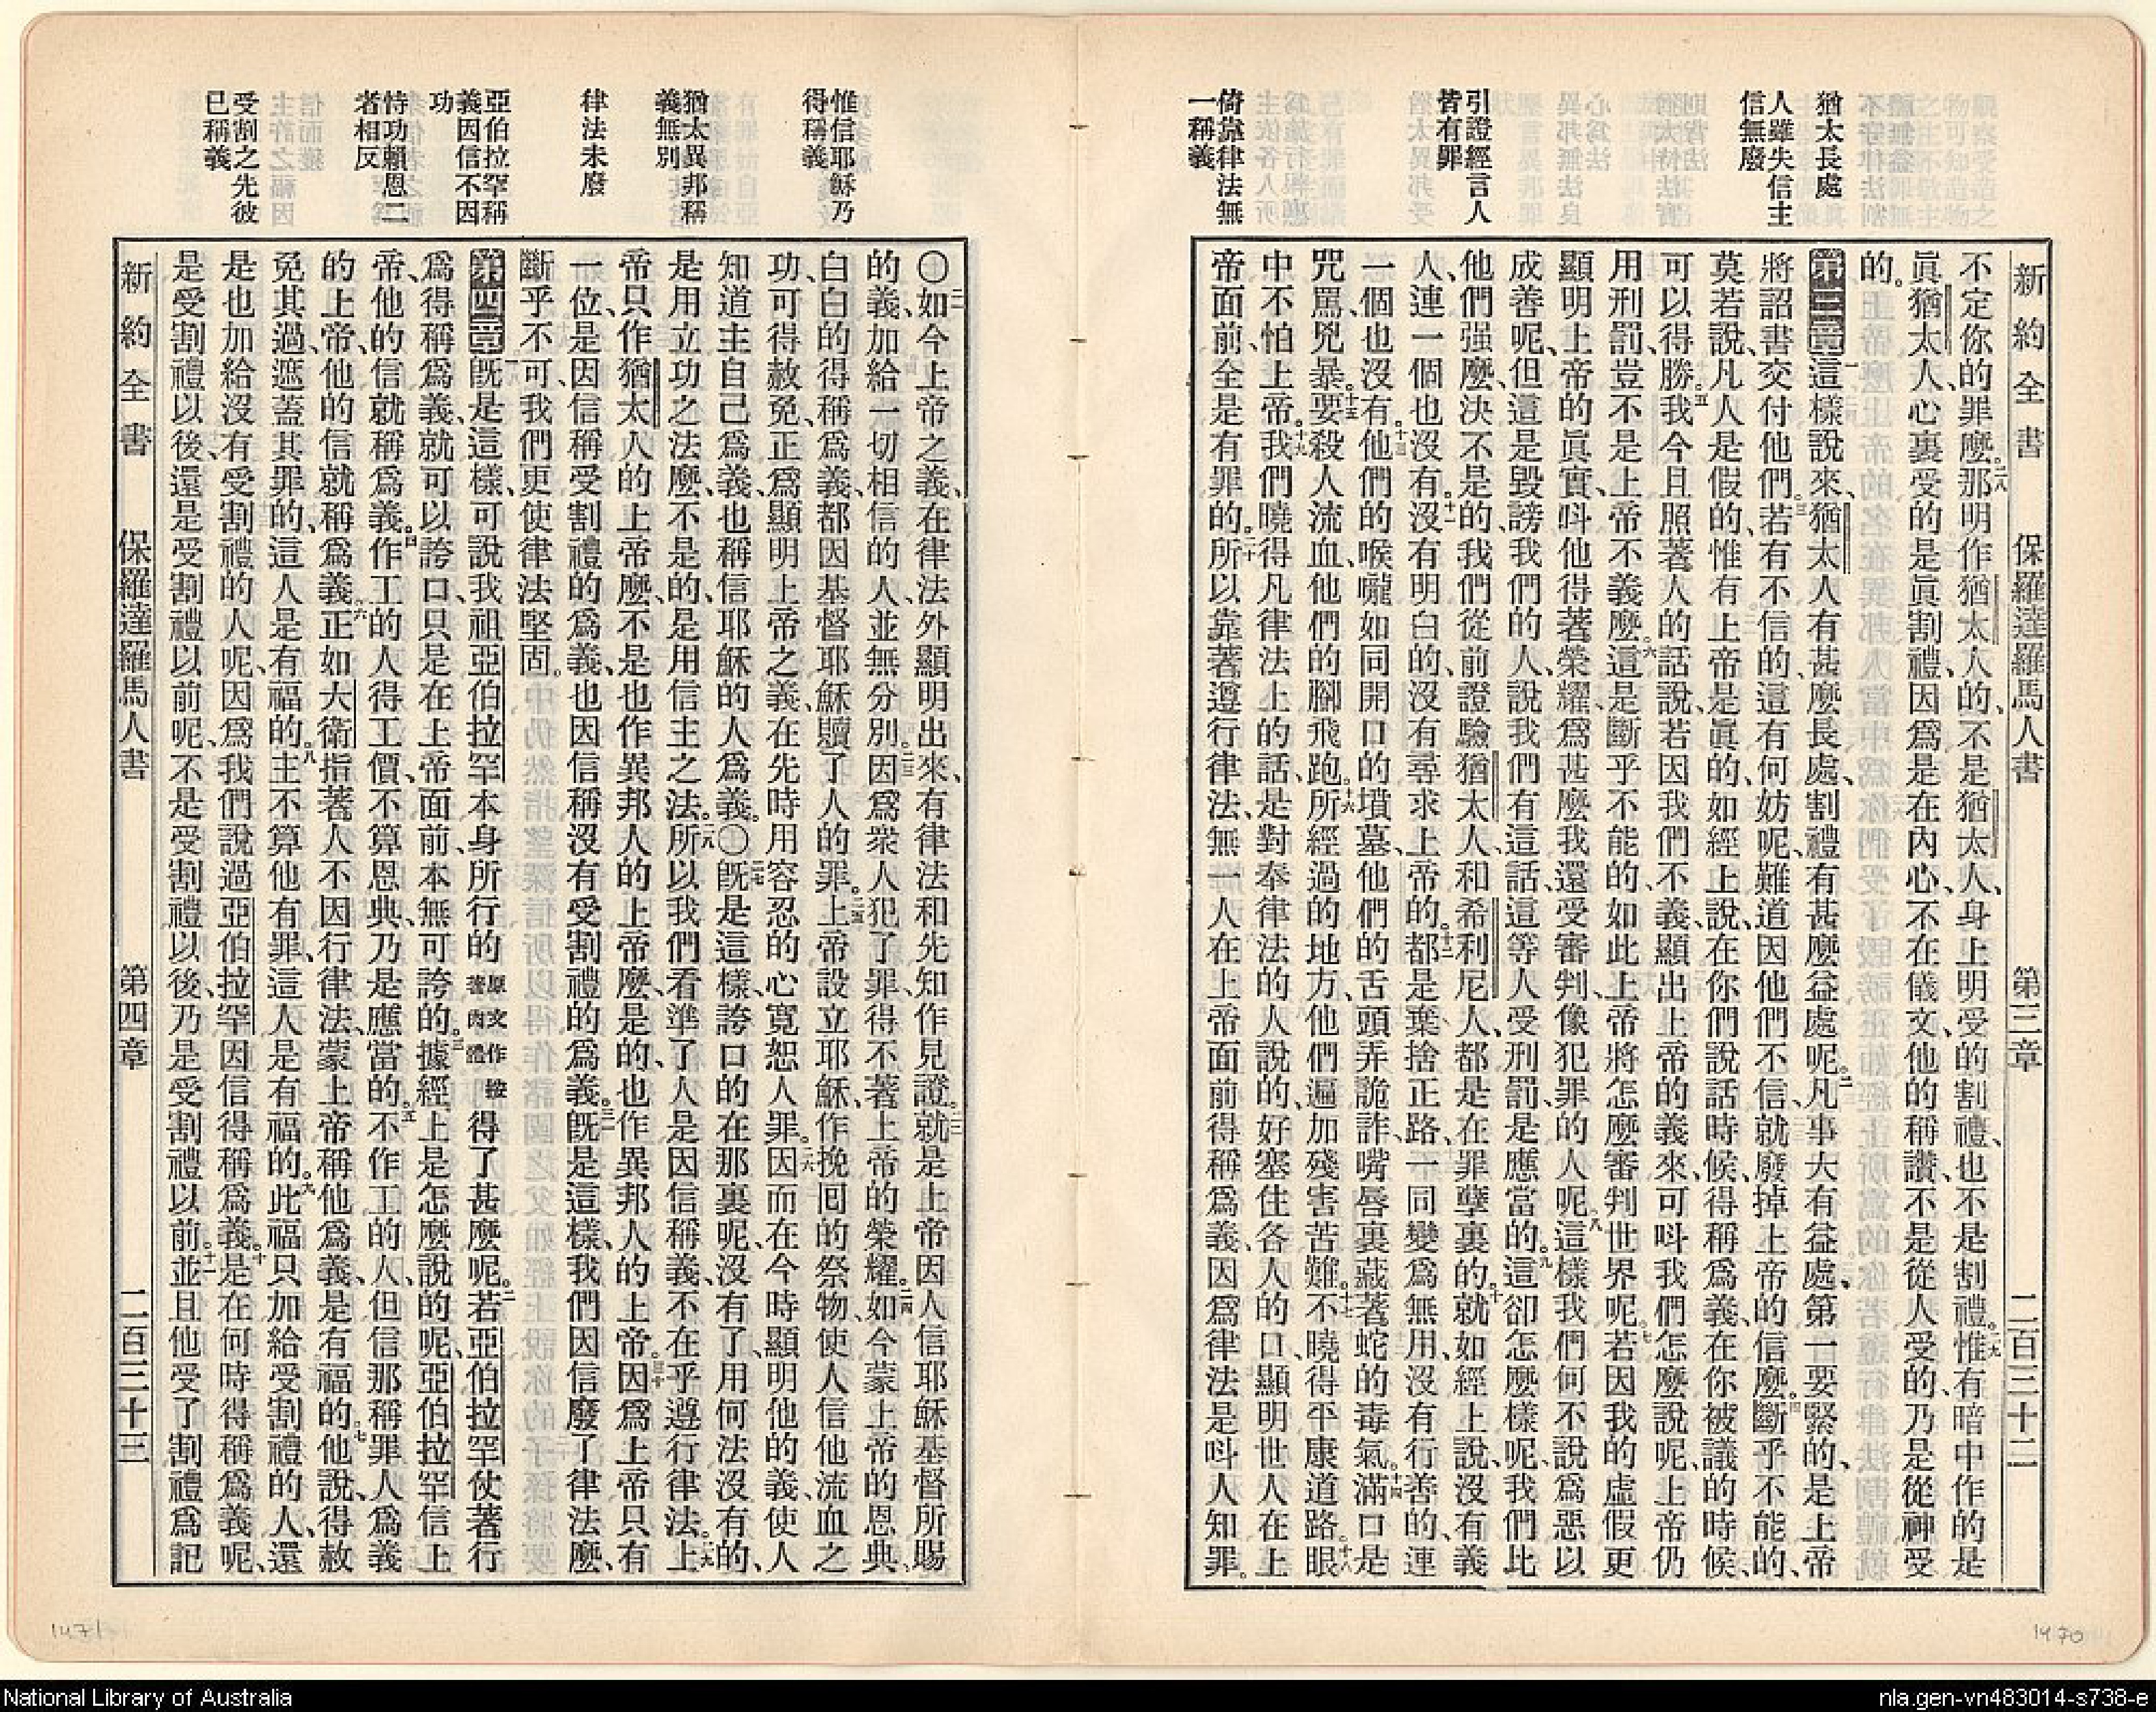 新約全書 保羅達羅馬人書 第三章 二百三十二
猶太長處
人雖失信主
信無廢
引證經言人
皆有罪
倚靠律法無
一稱義
不定你的罪麼。二八那明作猶太人的、不是猶太人、身上明受的割禮、也不是割禮。二九惟有暗中作的是
眞猶太人、心裏受的是眞割禮、因爲是在內心、不在儀文、他的稱讚不是從人受的、乃是從神受
的。
第三章一這樣說來、猶太人有甚麼長處、割禮有甚麼益處呢。二凡事大有益處、第一要緊的、是上帝
將詔書交付他們。三若有不信的、這有何妨呢、難道因他們不信、就廢掉上帝的信麼。四斷乎不能的、
莫若說、凡人是假的、惟有上帝是眞的、如經上說、在你們說話時候、得稱爲義、在你被議的時候、
可以得勝。五我今且照著人的話說、若因我們不義、顯出上帝的義來、可呌我們怎麼說呢、上帝仍
用刑罰、豈不是上帝不義麼。六這是斷乎不能的、如此上帝將怎麼審判世界呢。七若因我的虛假、更
顯明上帝的眞實、呌他得著榮耀、爲甚麼我還受審判、像犯罪的人呢。八這樣我們何不說爲惡以
成善呢、但這是毀謗我們的人、說我們有這話、這等人受刑罰是應當的。九這卻怎麼樣呢、我們比
他們强麼、決不是的、我們從前證驗猶太人、和希利尼人、都是在罪孽裏的。十就如經上說、沒有義
人、連一個也沒有。十一沒有明白的、沒有尋求上帝的。十二都是棄捨正路、一同變爲無用、沒有行善的、連
一個也沒有。十三他們的喉嚨如同開口的墳墓、他們的舌頭弄詭詐、嘴唇裏藏著蛇的毒氣。十四滿口是
咒罵兇暴。十五要殺人流血、他們的腳飛跑。十六所經過的地方、他們遍加殘害苦難。十七不曉得平康道路。十八眼
中不怕上帝。十九我們曉得凡律法上的話、是對奉律法的人說的、好塞住各人的口、顯明世人在上
帝面前、全是有罪的。二十所以靠著遵行律法、無一人在上帝面前得稱爲義、因爲律法是呌人知罪。
惟信耶穌乃
得稱義
猶太異邦稱
義無別
律法未廢
亞伯拉罕稱
義因信不因
功
恃功賴恩二
者相反
受割之先彼
已稱義
〇二一如今上帝之義、在律法外顯明出來、有律法和先知作見證。二二就是上帝因人信耶穌基督所賜
的義、加給一切相信的人、並無分別。二三因爲衆人犯了罪、得不著上帝的榮耀。二四如今蒙上帝的恩典、
白白的得稱爲義、都因基督耶穌贖了人的罪。二五上帝設立耶穌、作挽回的祭物、使人信他流血之
功、可得赦免、正爲顯明上帝之義、在先時用容忍的心、寬恕人罪。二六因而在今時顯明他的義、使人
知道主自己爲義、也稱信耶穌的人爲義。〇二七旣是這樣、誇口的在那裏呢、沒有了、用何法沒有的、
是用立功之法麼、不是的、是用信主之法。二八所以我們看準了人是因信稱義、不在乎遵行律法。二九上
帝只作猶太人的上帝麼、不是也作異邦人的上帝麼、是的、也作異邦人的上帝。三十因爲上帝只有
一位、是因信稱受割禮的爲義、也因信稱沒有受割禮的爲義。三一旣是這樣、我們因信廢了律法麼、
斷乎不可、我們更使律法堅固。
第四章一旣是這樣、可說我祖亞伯拉罕本身所行的原文作按著肉體得了甚麼呢。二若亞伯拉罕仗著行
爲得稱爲義、就可以誇口、只是在上帝面前、本無可誇的。三據經上是怎麼說的呢、亞伯拉罕信上
帝、他的信就稱爲義。四作工的人得工價、不算恩典、乃是應當的。五不作工的人、但信那稱罪人爲義
的上帝、他的信就稱爲義。六正如大衛指著人不因行律法、蒙上帝稱他爲義、是有福的。七他說、得赦
免其過、遮蓋其罪的、這人是有福的。八主不算他有罪、這人是有福的。九此福只加給受割禮的人、還
是也加給沒有受割禮的人呢、因爲我們說過亞伯拉罕因信得稱爲義。十是在何時得稱爲義呢、
是受割禮以後、還是受割禮以前呢、不是受割禮以後、乃是受割禮以前。十一並且他受了割禮爲記
新約全書 保羅達羅馬人書 第四章 二百三十三
1471
1470
National Library of Australia
nla.gen-vn483014-s738-e